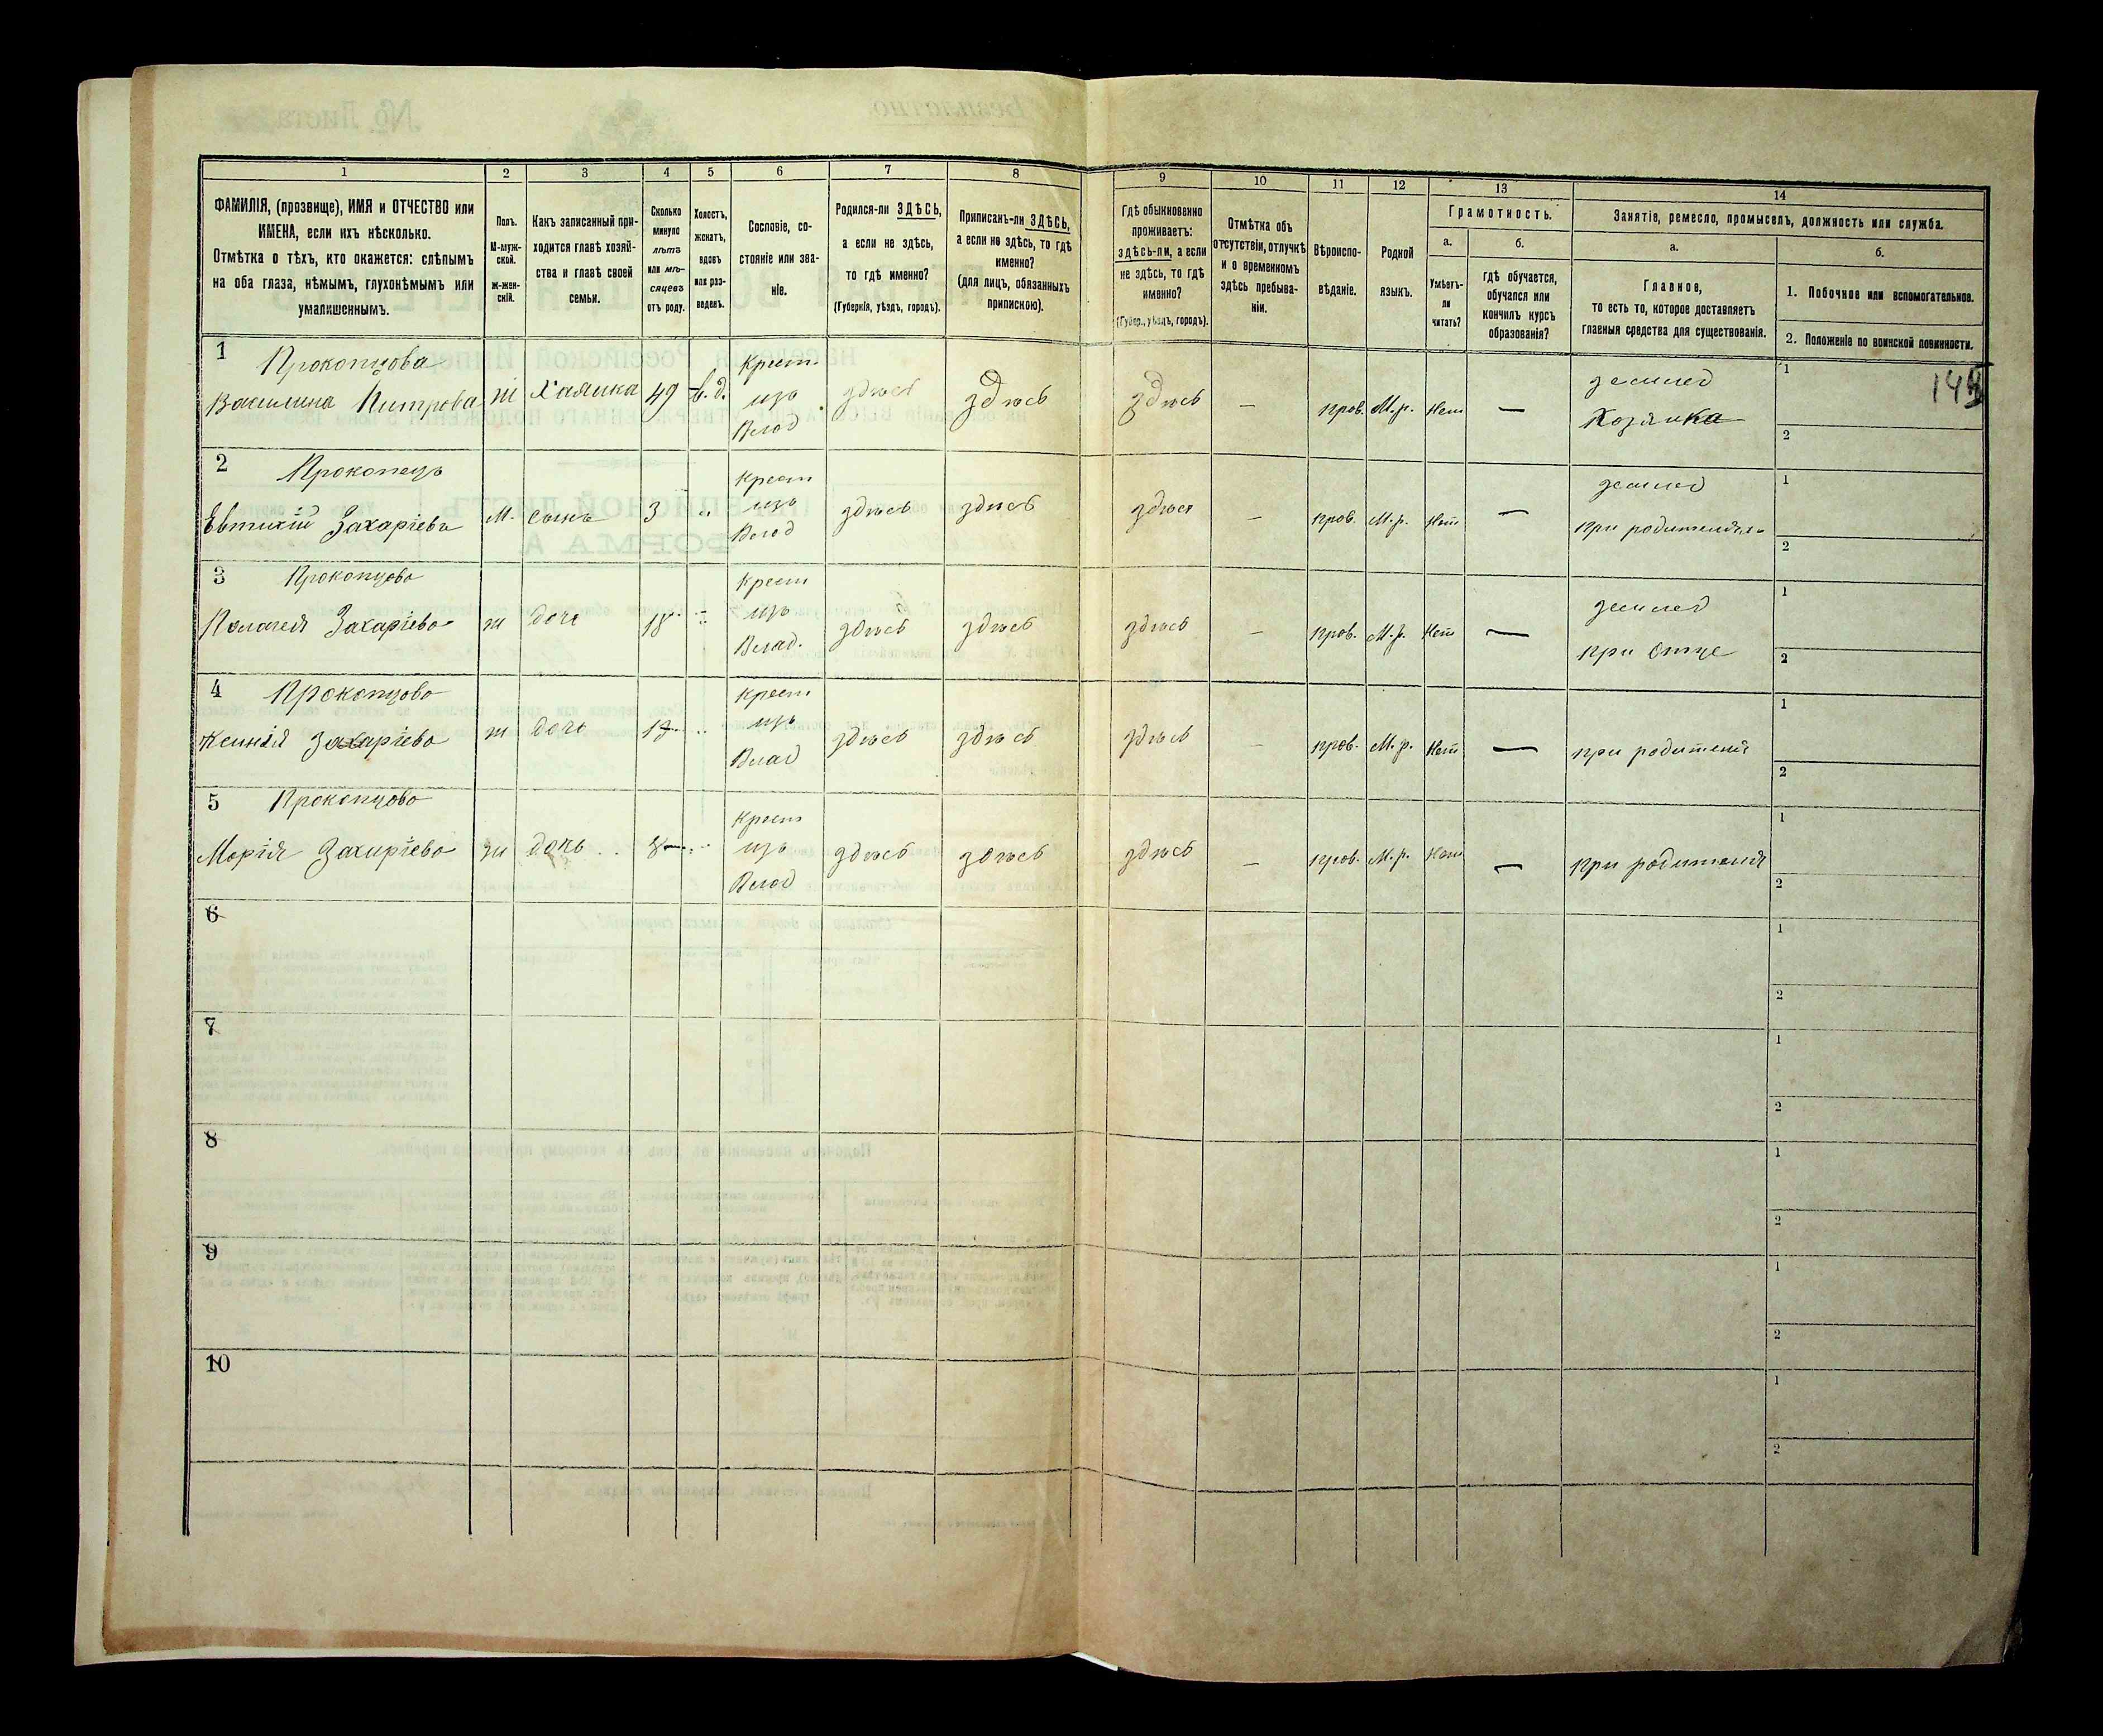 1
2
3
4
5
6
7
8
9
10
11
12
13
14
ФАМИЛІЯ, (прозвище), ИМЯ и ОТЧЕСТВО или
ИМЕНА, если ихъ нѣсколько.
Отмѣтка о тѣхъ, кто окажется: слѣпымъ
на оба глаза, нѣмымъ, глухонѣмымъ или
умалишеннымъ.
Полъ.
М-муж-
ской.
ж-жен-
скій.
Какъ записанный при-
ходится главѣ хозяй-
ства и главѣ своей
семьи.
Сколько
минуло
лѣтъ
или мѣ-
сяцевъ
отъ роду.
Холостъ,
женатъ,
вдовъ
или раз-
веденъ.
Сословіе, со-
стояніе или зва-
ніе.
Родился-ли ЗДѢСЬ,
а если не здѣсь,
то гдѣ именно?
(Губернія, уѣздъ, городъ).
Приписанъ-ли ЗДѢСЬ,
а если не здѣсь, то гдѣ
именно?
(для лицъ, обязанныхъ
припискою).
Гдѣ обыкновенно
проживаетъ:
здѣсь-ли, а если
не здѣсь, то гдѣ
именно?
(Губер., уѣздъ, городъ).
Отмѣтка объ
отсутствіи, отлучкѣ
и о временномъ
здѣсь пребыва-
ніи.
Вѣроиспо-
вѣданіе.
Родной
языкъ.
Грамотность.
а.
Умѣетъ-
ли
читать?
б.
гдѣ обучается,
обучался или
кончилъ курсъ
образованія?
Занятіе, ремесло, промыселъ, должность или служба.
а.
Главное,
то есть то, которое доставляетъ
главныя средства для существованія.
б.
1. Побочное или вспомогательное.
2. Положеніе по воинской повинности.
1 Прокопцова
Василина Питрова ж Хазяика 49 в.д. Крест. изъ Влад здѣсь здѣсь здѣсь — прав. М.р. Нет — землед
Хозяика
1
2
2 Прокопецъ
Евтихій Захаріевъ М. сынъ 3 „ Крест изъ Влад здѣсь здѣсь здѣсь — прав. М.р. Нет — землед
при родителяхъ
1
2
3 Прокопцова
Пелагея Захаріева ж дочь Крест изъ Влад. здѣсь здѣсь здѣсь — прав. М.р. Нет — землед
при Отце
1
2
4 Прокопцова
Ксинія Захаріева ж дочь Крест изъ Влад здѣсь здѣсь здѣсь — прав. М.р. Нет — при родителя
1
2
5 Прокопцова
Марія Захаріева ж дочь Крест изъ Влад здѣсь здѣсь здѣсь — прав. М.р. Нет — при родителя
1
2
6
1
2
7
1
2
8
1
2
9
1
2
10
1
2